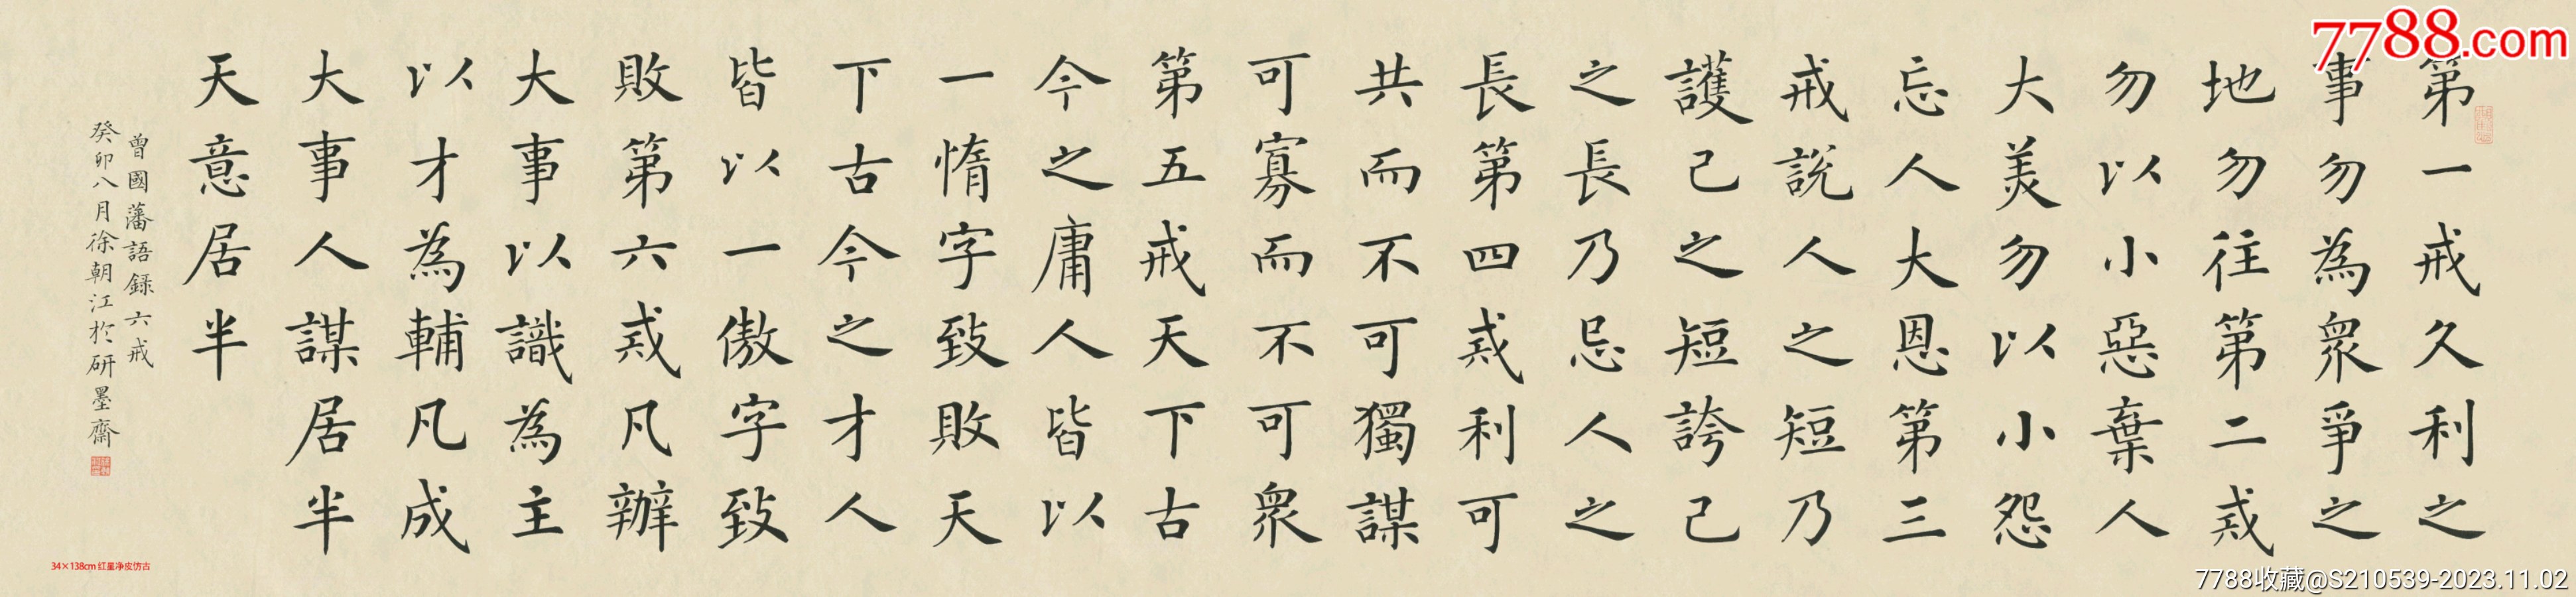 第一戒久利之
事勿為衆爭之
地勿往第二戒
勿以小惡棄人
大美勿以小怨
忘人大恩第三
戒説人之短乃
護己之短誇己
之長乃忌人之
長第四戒利可
共而不可獨謀
可寡而不可衆
第五戒天下古
今之庸人皆以
一惰字致敗天
下古今之才人
皆以一傲字致
敗第六戒凡辦
大事以識為主
以才為輔凡成
大事人謀居半
天意居半
曾國藩語録六戒
癸卯八月徐朝江於研墨齋
7788.com
34×138cm 红星净皮仿古
7788收藏@S210539-2023.11.02